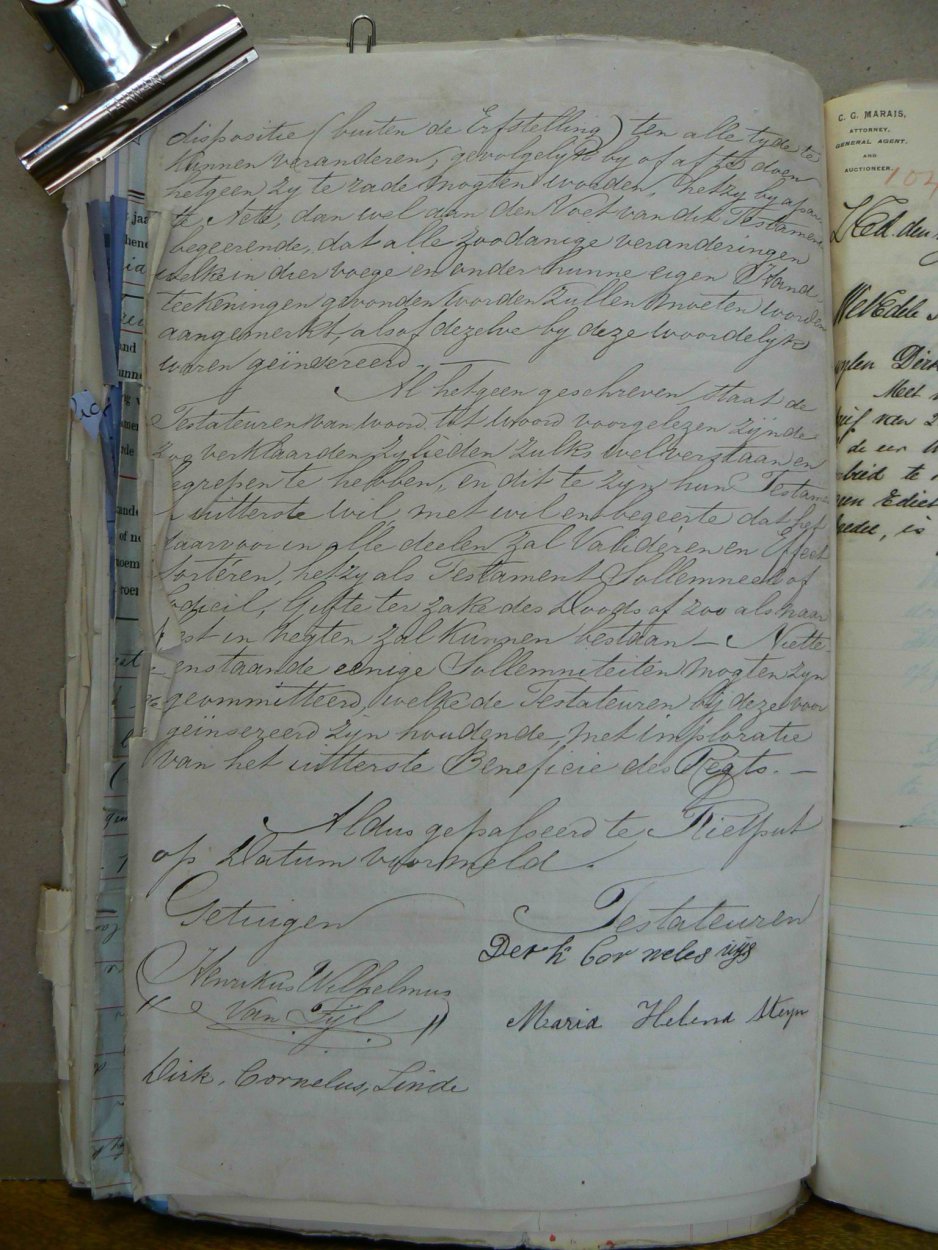 dispositie (buiten de Erfstelling) ten alle tyde te
kunnen veranderen, gevolgelyk by of af te doen
hetgeen zy te rade mogten worden, hetzy by apar
te Acte, dan wel aan den Voet van dit Testament
begeerende, dat alle zoodanige veranderingen
welke in dier voege en onder hunne eigen Hand
teekeningen gevonden worden zullen moeten worden
aangemerkt, alsof dezelve by deze woordelyk
waren geïnsereerd.
Al hetgeen geschreven staat de
Testateuren van woord tot woord voorgelezen zijnde
zoo verklaarden zylieden zulks wel verstaan en
egrepen te hebben, en dit te zijn hun Testam
uitterste wil, met wil en begeerte dat het
daarvoor in alle deelen zal Valideren en Effect
sorteren, hetzy als Testament Sollemneel of
odicil, Gifte ter zake des Doods of zoo als naar
est in regten zal kunnen bestaan — Niette
enstaande eenige Sollemniteiten mogten zyn
geommitteerd, welke de Testateuren by deze voor
geinsereerd zijn houdende, met imploratie
van het uitterste Beneficie des Regts. —
Aldus gepasseerd te Rietput
op Datum voormeld.
Getuigen
Testateuren
Derk Corneles uys
Henrikus Wilhelmus
Van Zijl
Maria Helena Steyn
Dirk, Cornelus, Linde
C. G. MARAIS,
ATTORNEY,
GENERAL AGENT,
AND
AUCTIONEER.
104
WelEdele
Dirk
Met
van
de een
te
Edict
is
TAIWAN